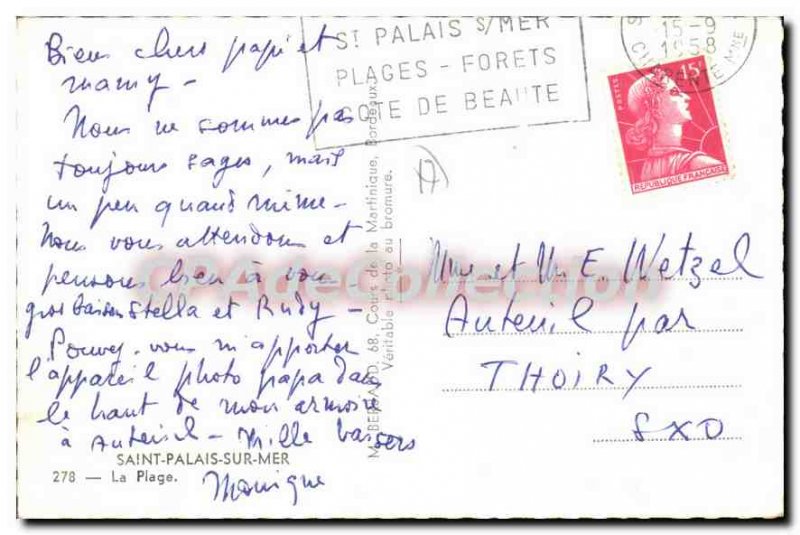 Biens chers papi et
mamy -
Nous ne sommes pas
toujours sages, mais
un peu quand même -
Nous vous attendons et
pensons bien à vous
gros baisers Stella et Rudy -
Pouvez-vous m'apporter
l'appareil photo papa dans
le haut de mon armoire
à Auteuil - Mille baisers
Monique
SAINT-PALAIS-SUR-MER
278 — La Plage.
68, Cours de la Martinique, Bordeaux
Véritable photo au bromure.
ST PALAIS S/MER
PLAGES - FORETS
COTE DE BEAUTE
15-9
1958
POSTES
15F
REPUBLIQUE FRANÇAISE
Mme et Mr E. Wetzel
Auteuil par
THOIRY
SXO
CPAdeCollection